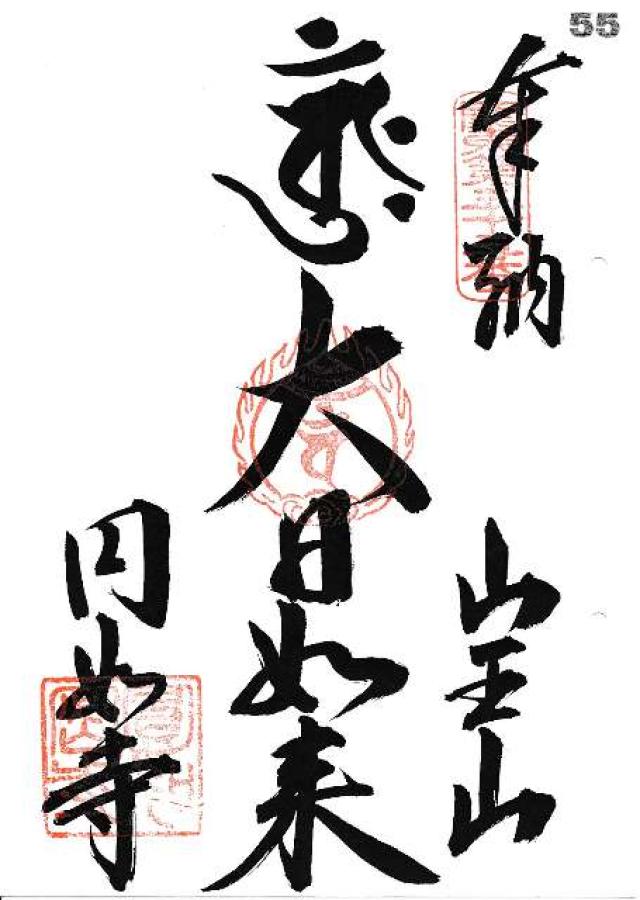 55
奉納
山王山
大日如来
円如寺